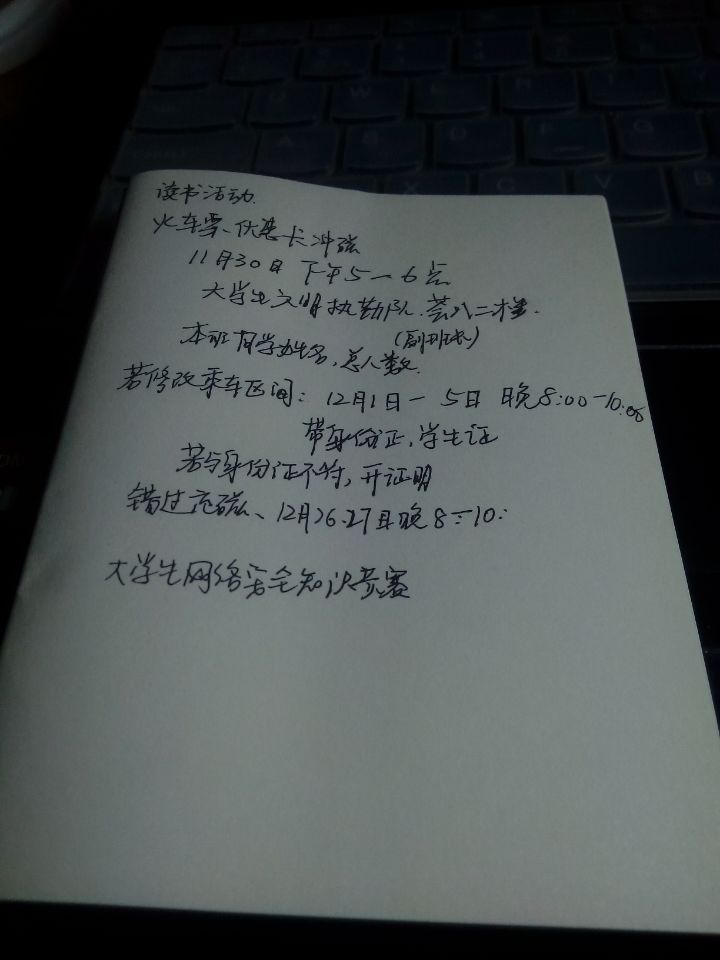 读书活动.
火车票、优惠卡冲磁
11月30日 下午5-6点
大学生文明执勤队.荟八二楼.
本班同学姓名,总人数.
(副班长)
若修改乘车区间: 12月1日-5日 晚8:00-10:00
带身份证,学生证
若与身份证不符,开证明
错过充磁、12月26.27日晚8:-10:
大学生网络安全知识竞赛